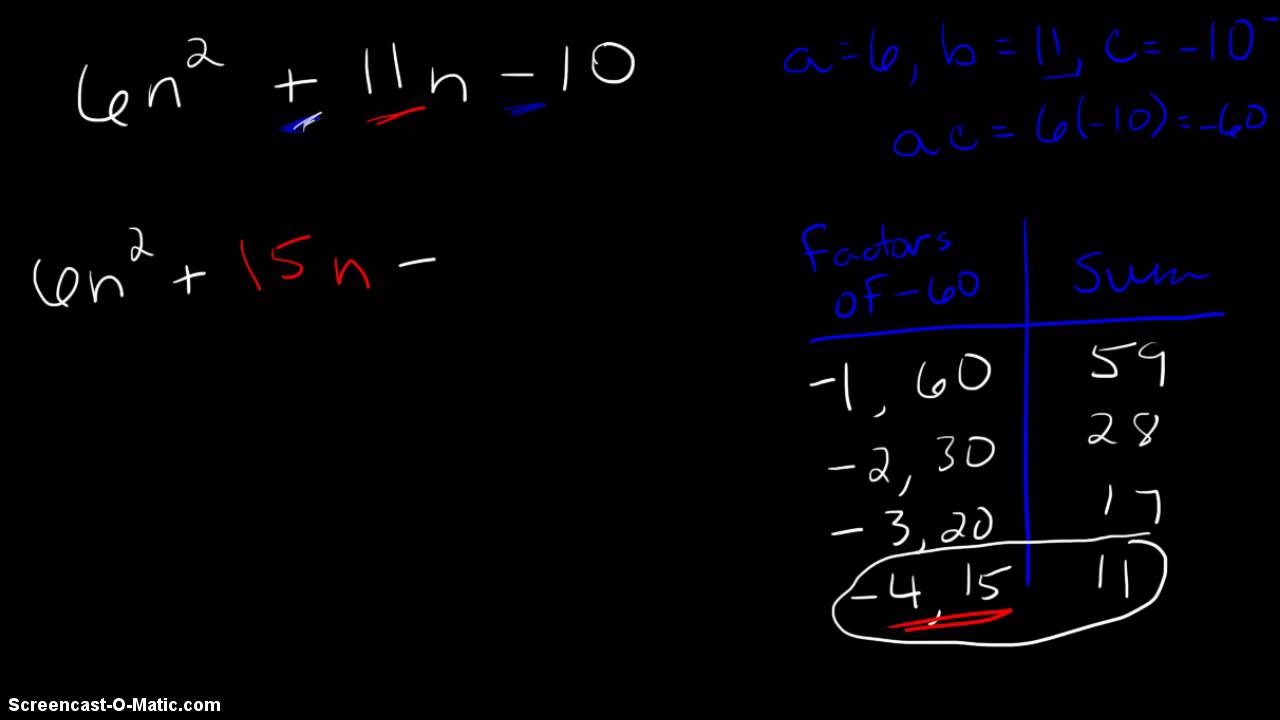 6n² + 11n - 10
a = 6, b = 11, c = -10
ac = 6(-10) = -60
6n² + 15n -
Factors of -60 | Sum
-1, 60 | 59
-2, 30 | 28
-3, 20 | 17
-4, 15 | 11
Screencast-O-Matic.com